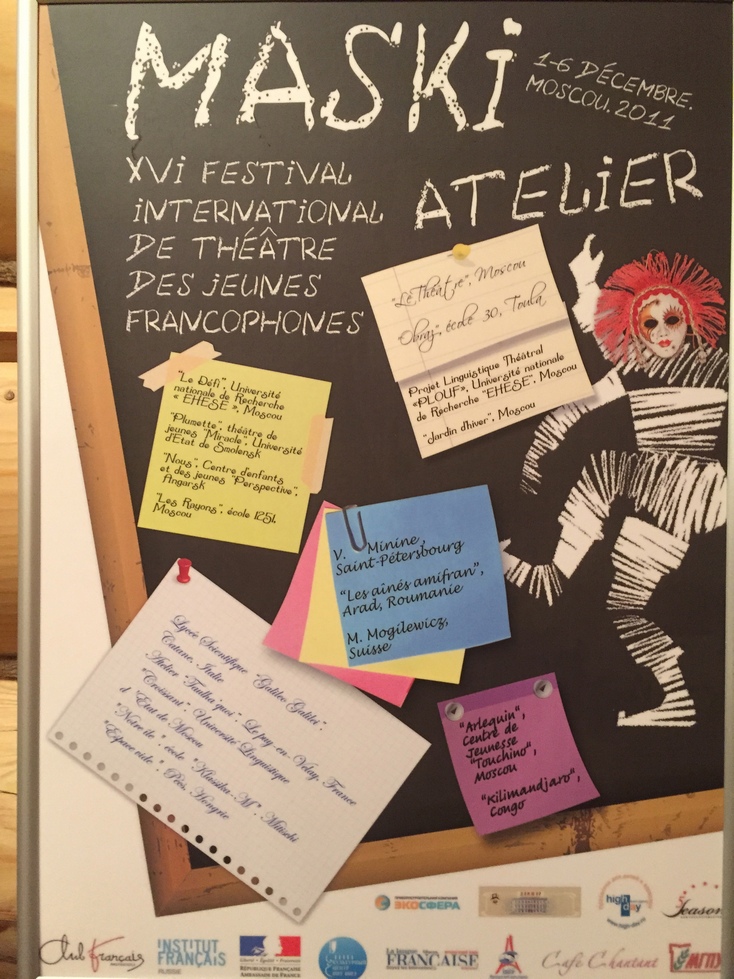 MASKi
1-6 DÉCEMBRE.
MOSCOU. 2011
XVi FESTiVAL
iNTERNATiONAL
DE THÉÂTRE
DES JEUNES
FRANCOPHONES
ATELiER
"Le Théâtre", Moscou
"Obraz", école 30, Toula
Projet Linguistique Théâtral
«PLOUF», Université nationale
de Recherche "EHESE", Moscou
"Jardin d'hiver", Moscou
"Le Défi", Université
nationale de Recherche
« EHESE », Moscou
"Plumette", théâtre de
jeunes "Miracle", Université
d'Etat de Smolensk
"Nous", Centre d'enfants
et des jeunes "Perspective",
Angarsk
"Les Rayons", école 1251,
Moscou
V. Minine,
Saint-Pétersbourg
"Les aînés amifran",
Arad, Roumanie
M. Mogilewicz,
Suisse
Lycée Scientifique "Galileo Galilei",
Catane, Italie
Atelier "Faulha'quoi", Le puy-en-Velay, France
"Croissant", Université Linguistique
d'Etat de Moscou
"Notre île", école "Klassika-M",
"Espace vide", Pécs, Hongrie
"Arlequin",
Centre de
Jeunesse
"Touchino",
Moscou
"Kilimandjaro",
Congo
ЭКОСФЕРА
high
day
Season
Club Français
INSTITUT
FRANÇAIS
RUSSIE
Liberté • Égalité • Fraternité
RÉPUBLIQUE FRANÇAISE
AMBASSADE DE FRANCE
La langue
FRANÇAISE
Café Chantant